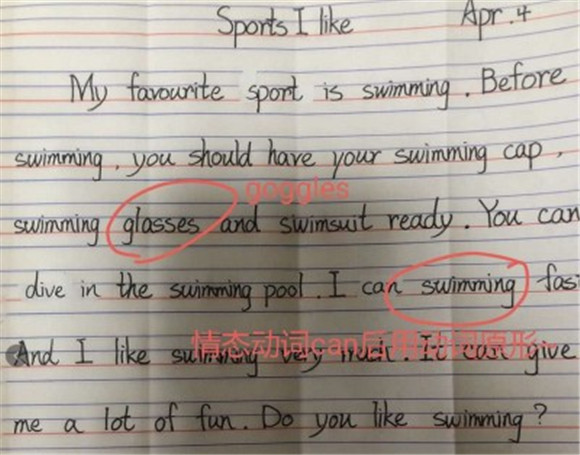 Sports I like Apr. 4
My favourite sport is swimming. Before
swimming, you should have your swimming cap,
goggles
swimming glasses and swimsuit ready. You can
dive in the swimming pool. I can swimming fas
情态动词can后用动词原形~
And I like swimming very much. It can give
me a lot of fun. Do you like swimming?